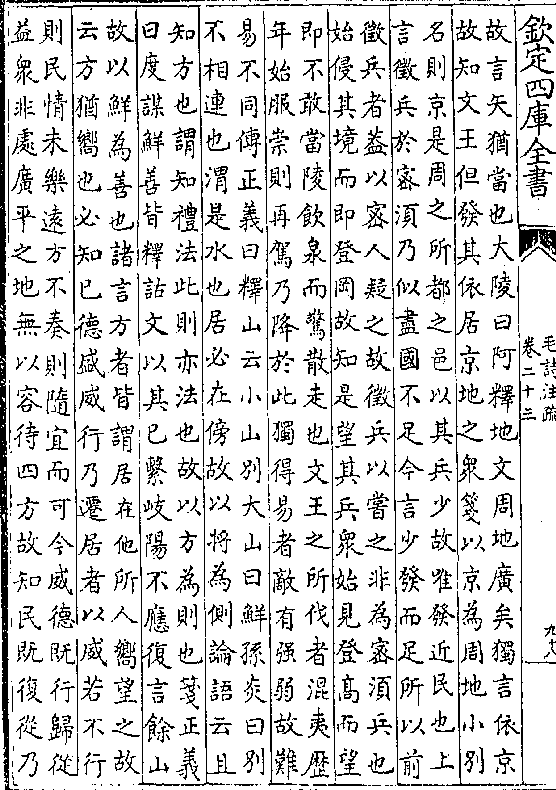 欽定四庫全書
毛詩注疏
卷二十三
故言矢猶當也大陵曰阿釋地文周地廣矣獨言依京
故知文王但發其依居京地之衆箋以京為周地小别
名則京是周之所都之邑以其兵少故唯發近民也上
言徵兵於密須乃似盡國不足今言少發而足所以前
徵兵者葢以密人疑之故徵兵以嘗之非為密須兵也
始侵其境而即登岡故知是望其兵衆始見登髙而望
即不敢當陵飲泉而驚散走也文王之所伐者混夷歴
年始服崇則再駕乃降於此獨得易者敵有强弱故難
易不同傳正義曰釋山云小山别大山曰鮮孫炎曰别
不相連也渭是水也居必在傍故以将為側論語云且
知方也謂知禮法此則亦法也故以方為則也箋正義
曰度謀鮮善皆釋詁文以其已繫岐陽不應復言餘山
故以鮮為善也諸言方者皆謂居在他所人嚮望之故
云方猶嚮也必知已德盛威行乃遷居者以威若不行
則民情未樂逺方不奏則隨宜而可今威德既行歸從
益衆非處廣平之地無以容待四方故知民既復從乃